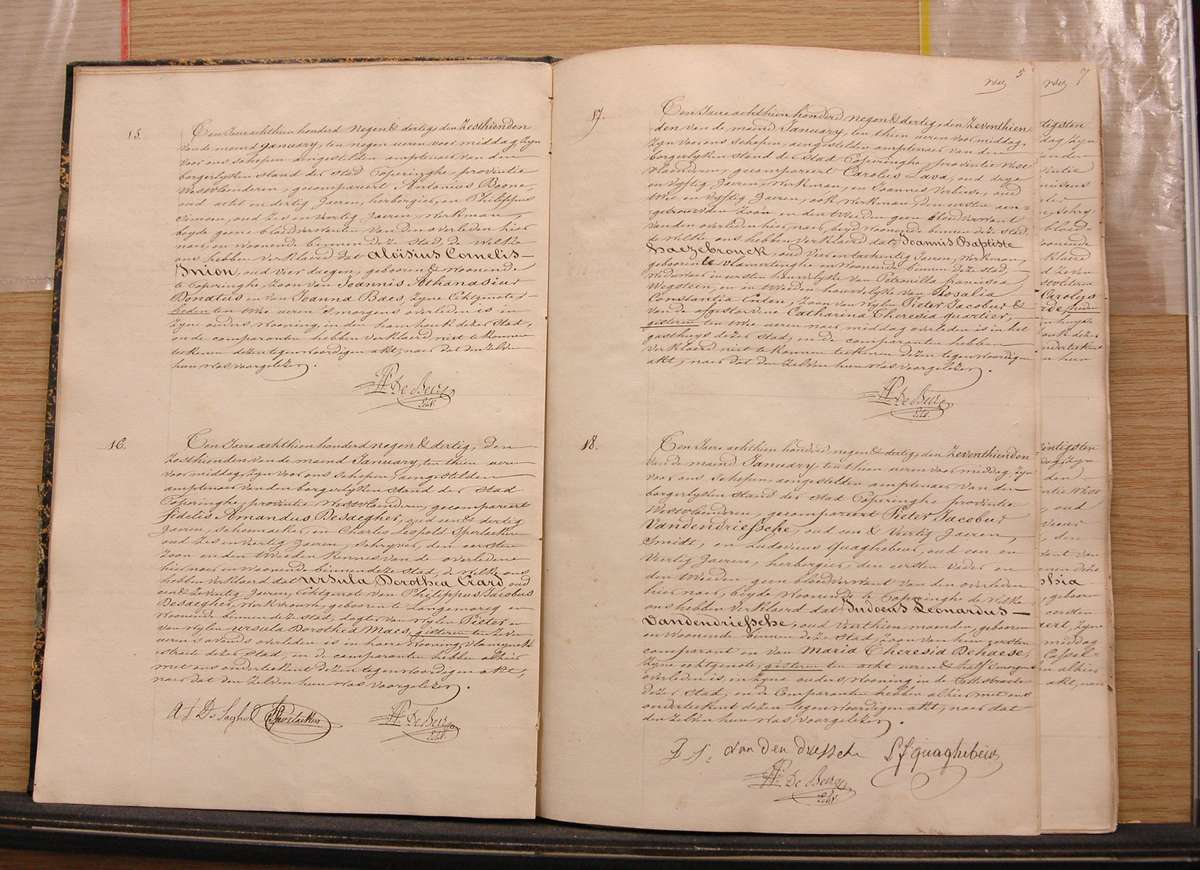 15.
Een Jaere achthien honderd negen & dertig, den Zesthienden
van de maend January, ten negen ueren voor middag, Zyn
voor ons schepen aengestelden amptenaer van den
borgerlyken stand der stad Poperinghe provintie
Westvlaenderen, gecompareert Antonius Boone,
oud acht en dertig Jaeren, herbergier, en Philippus
Simoen, oud Zes en Veertig Jaeren, Werkman,
beyde geene bloedverwanten van den overleden hier
naer, en Woonende binnen deze Stad, de Welke
ons hebben Verklaerd dat Aloisius Cornelis
Inion, oud vier daegen, geboren & Woonende
te Poperinghe, Zoon van Joannis Athanasius
Donatus en van Joanna Baes, Zyne Echtgenote
heden ten twee ueren 's morgens overleden is in
Zyne ouders Wooning, in den deser Stad,
en de comparanten hebben verklaerd niet te konnen
teekenen dezen tegenwoordigen akt, naer dat den Zelven
hun was voorgelezen.
De Berge
Sch.
16.
Een Jaere achthien honderd negen & dertig, Den
Zesthienden van de maend January, ten thien ueren
voor middag, Zyn voor ons Schepen, aengestelden
amptenaer van den borgerlyken stand der Stad
Poperinghe, provintie Westvlaendren, gecompareert
Fidelis Amandus Desaegher, oud een & dertig
Jaeren, en Charles Leopold Sperlaeken
oud Zes en Veertig Jaeren, Schryver, den eersten
Zoon en den tweeden Kennis van de overledene
hier naer en Woonende binnen deze Stad, de Welke ons
hebben Verklaerd dat Ursula Dorothea Criard, oud
een & Zeventig Jaeren, Echtgenote van Philippus Jacobus
Desaegher, Werkvrouw, geboren te Langemarcq en
Woonende binnen de Zelve Stad, dogter van Wylen Pieter en
van Wylen Ursula Dorothea Maes, gisteren ten Zeven
ueren 's avonds overleden is in haere Wooning
straete dezer Stad, en de comparanten hebben alhier
met ons onderteekent dezen tegenwoordigen akt,
naer dat den Zelven hun was voorgelezen.
De Berge
Sch.
5
17.
Een Jaere achthien honderd negen & dertig, den Zeventhien
den van de maend January, ten thien ueren voor middag,
Zyn voor ons schepen, aengestelden amptenaer van den
borgerlyken stand der Stad Poperinghe, provintie West
vlaenderen, gecompareert Carolus Lava, oud drye
en Vyftig Jaeren, Werkman, en Joannis Verliese, oud
twee en Vyftig Jaeren, ook Werkman, den eersten aen-
getrouwden Zoon en den tweeden geen bloedverwant
van den overleden hier naer, beyde woonende binnen deze Stad,
de Welke ons hebben Verklaerd dat Joannis Baptiste
Haezebrouck, oud vier en tachentig Jaeren, Werkman,
geboren te Vlamertinghe en Woonende binnen deze Stad,
Weduwaer in eersten houwelyke van Petronilla Francisca
Wegsteen, en in tweeden houwelyke van Rosalia
Constantia Coden, Zoon van Wylen Pieter Jacobus &
van de afgestorvene Catharina Theresia Quartier,
gisteren ten twee ueren naer middag overleden is in het
gasthuys dezer Stad, en de comparanten hebben
verklaerd niet te konnen teekenen dezen tegenwoordigen
akt, naer dat den Zelven hun was voorgelezen.
De Berge
Sch.
18.
Een Jaere achthien honderd negen & dertig, den Zeventhienden
van de maend January, ten thien ueren voor middag, Zyn
voor ons Schepen, aengestelden amptenaer van den
borgerlyken stand der Stad Poperinghe provintie
Westvlaendren, gecompareert Pieter Jacobus
Vandendriessche, oud een & Veertig Jaeren,
Smidt, en Ludovicus Quaghebeur, oud een en
Veertig Jaeren, herbergier, den eersten Vader en
den tweeden geen bloedverwant van den overleden
hier naer, beyde Woonende te Poperinghe de Welke
ons hebben Verklaerd dat Judocus Leonardus
Vandendriessche, oud Veerthien maenden geboren
en Woonende binnen deze Stad, Zoon van den eersten
comparant en van Maria Theresia Dehaese,
Zyne echtgenote, gisteren ten acht ueren & half 's morgens
overleden is in Zyne ouders Wooning in de
dezer Stad, en de Comparanten hebben alhier met ons
onderteekent dezen tegenwoordigen akt, naer dat
den Zelven hun was voorgelezen.
P J. van den driessche L f quaghebeur
De Berge
Sch.
7